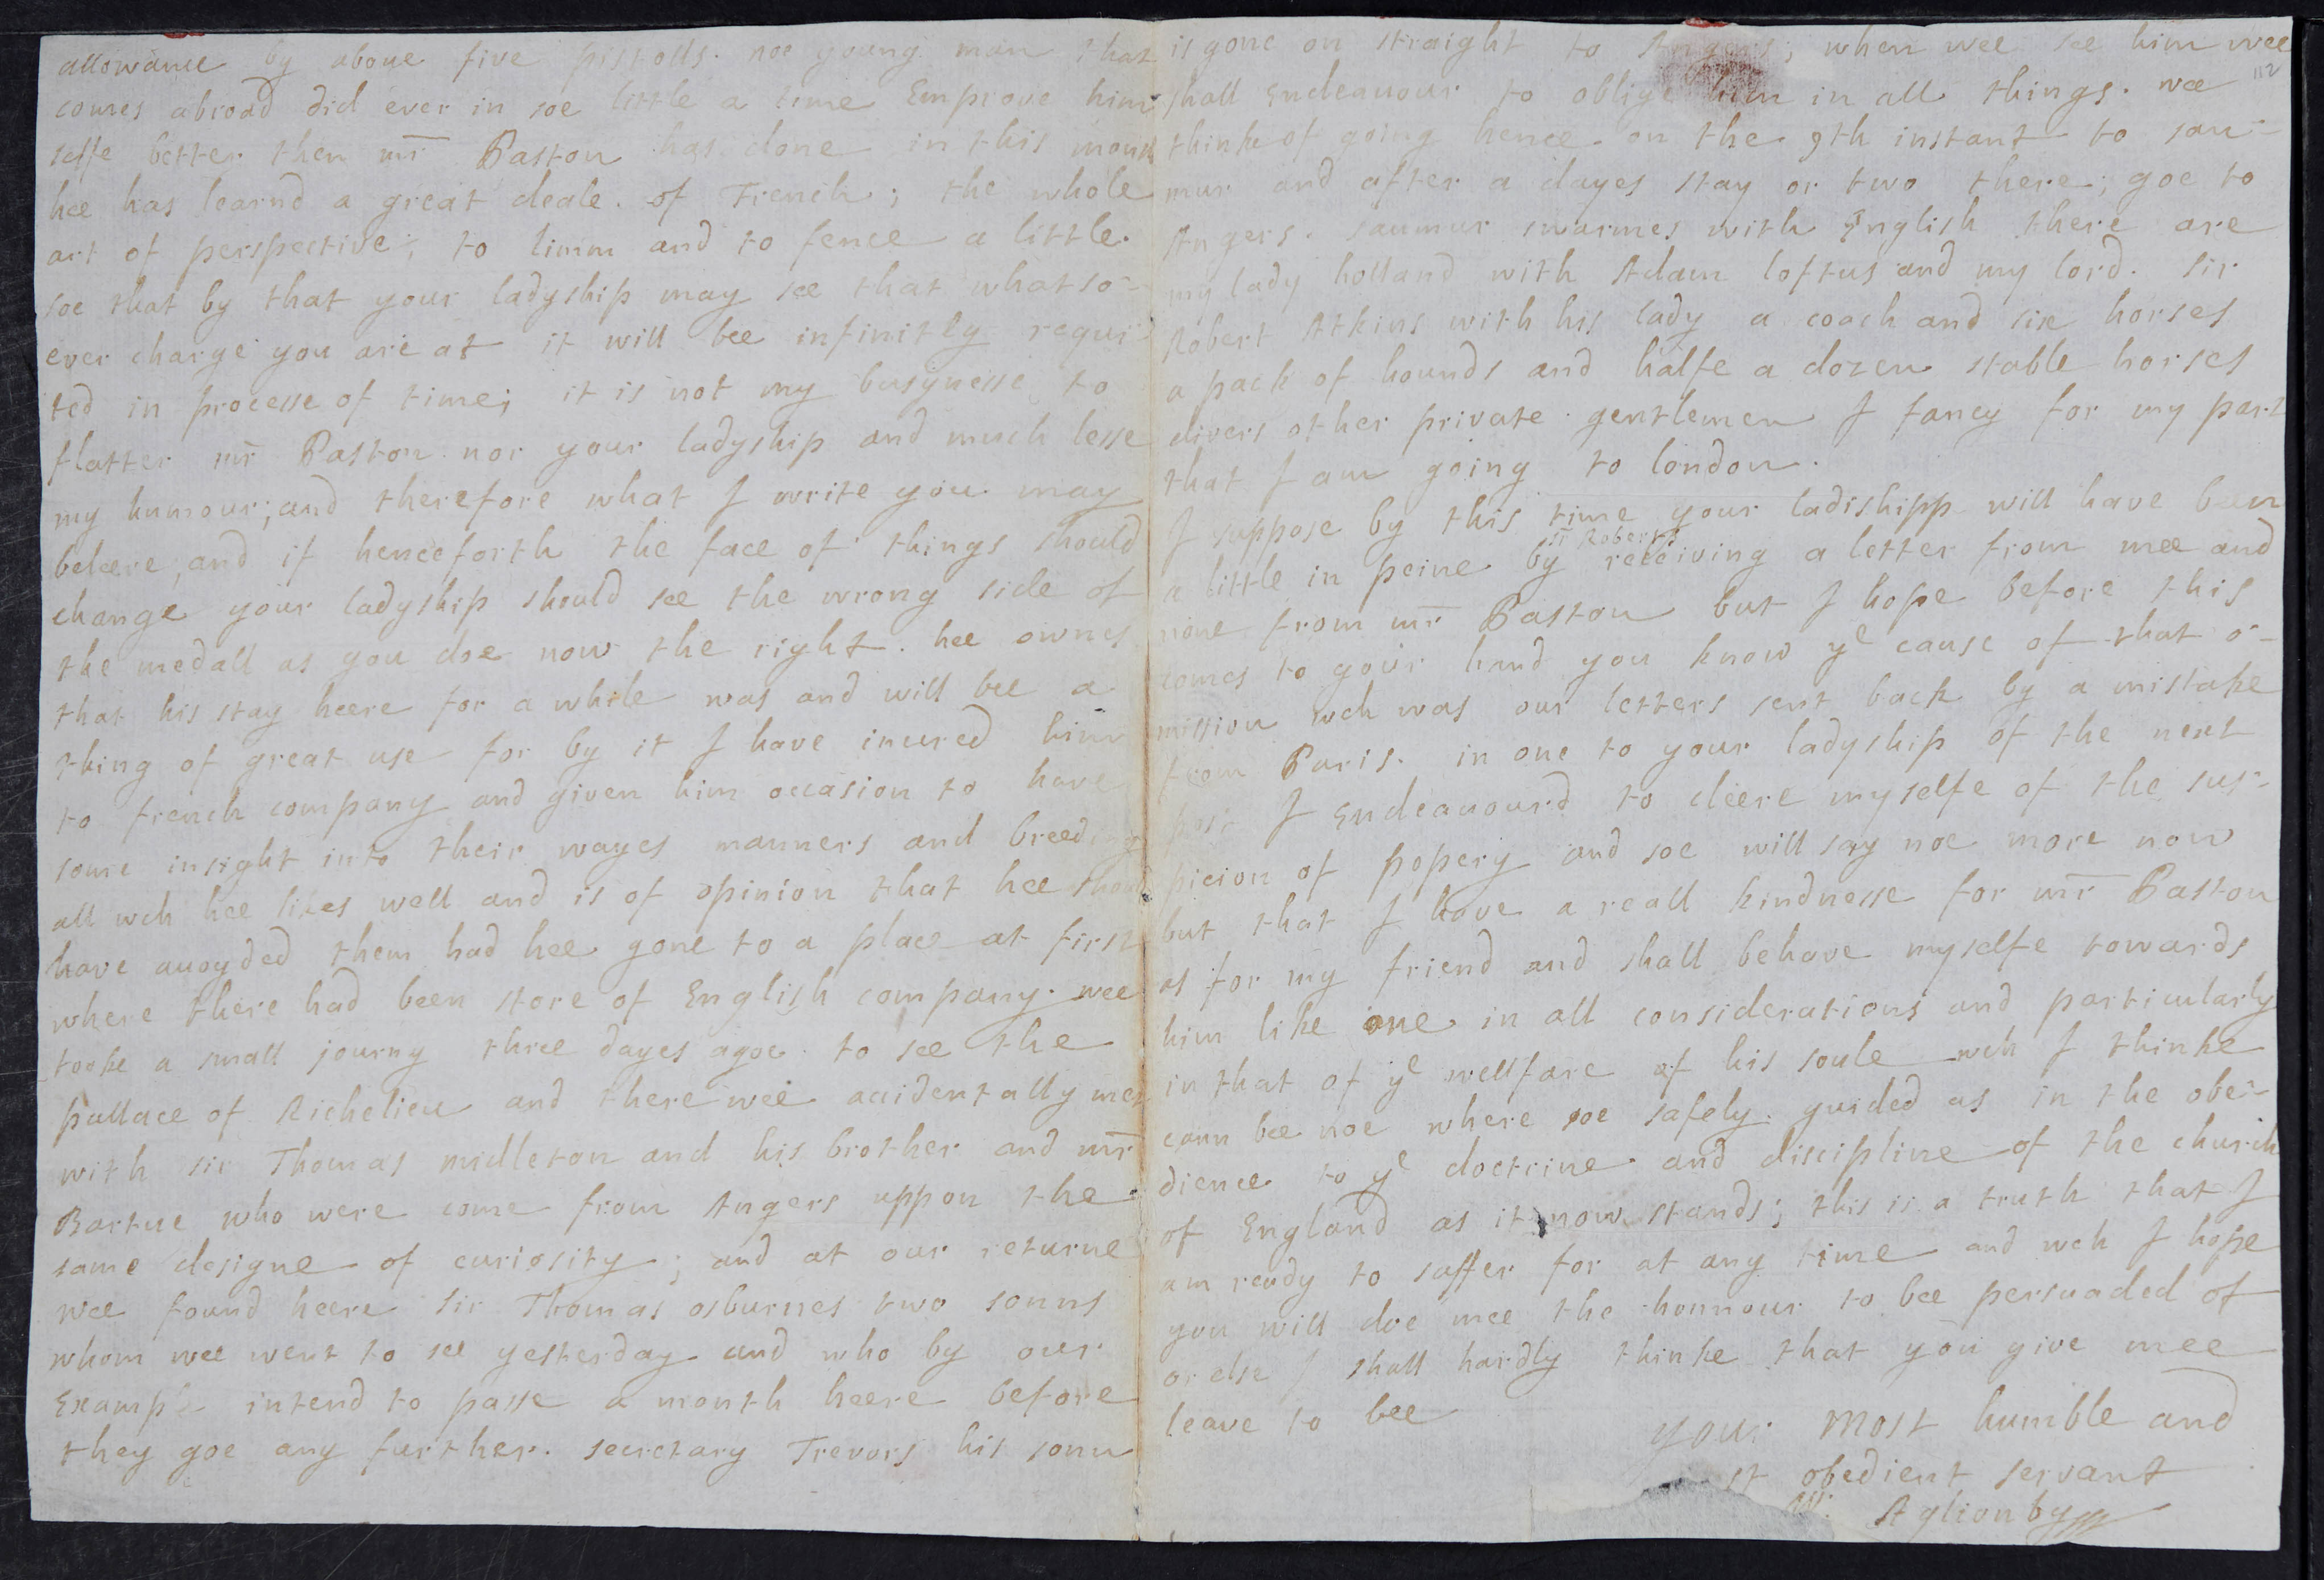 allowance by aboue five pistolls. noe young man that
comes abroad did ever in soe little a time Emprove him
selfe better then mr Paston has done in this month
hee has learnd a great deale of French; the whole
art of perspective; to limm and to fence a little.
soe that by that your ladyship may see that whatso-
ever charge you are at it will bee infinitly requi-
ted in processe of time; it is not my busynesse to
flatter mr Paston nor your ladyship and much lesse
my humour; and therefore what I write you may
beleere, and if henceforth the face of things should
change your ladyship should see the wrong side of
the medall as you doe now the right. hee ownes
that his stay heere for a while was and will bee a
thing of great use for by it I have inured him
to french company and given him occasion to have
some insight into their wayes manners and breeding
all wch hee likes well and is of opinion that hee should
have auoyded them had hee gone to a place at first
where there had been store of English company. wee
tooke a small journy three dayes agoe to see the
pallace of Richelieu and there wee accidentally met
with sir Thomas midleton and his brother and mr
Bartue who were come from Angers uppon the
same designe of curiosity; and at our returne
wee found heere sir Thomas osburnes two sonns
whom wee went to see yesterday and who by our
Example intend to passe a month heere before
they goe any further. secretary Trevors his sonn
112
is gone on straight to Angers; when wee see him wee
shall Endeauour to oblige him in all things. wee
thinke of going hence on the 9th instant to sau-
mur and after a dayes stay or two there; goe to
Angers. saumur swarmes with English there are
my lady holland with Adam loftus and my lord. sir
Robert Atkins with his lady a coach and six horses
a pack of hounds and halfe a dozen stable horses
divers other private gentlemen I fancy for my part
that I am going to london.
I suppose by this time your ladishipp will have been
sr Roberts
a little in peine by receiving a letter from mee and
none from mr Paston but I hope before this
comes to your hand you know ye cause of that o-
mission wch was our letters sent back by a mistake
from Paris. in one to your ladyship of the next
post I Endeauourd to cleere myselfe of the sus-
picion of popery and soe will say noe more now
but that I have a reall kindnesse for mr Paston
as for my friend and shall behave myselfe towards
him like one in all considerations and particularly
in that of ye wellfare of his soule wch I thinke
cann bee noe where soe safely guided as in the obe-
dience to ye doctrine and discipline of the church
of England as it now stands; this is a truth that I
am ready to suffer for at any time and wch I hope
you will doe mee the honnour to bee persuaded of
or else I shall hardly thinke that you give mee
leave to bee
your most humble and
st obedient servant
Aglionby